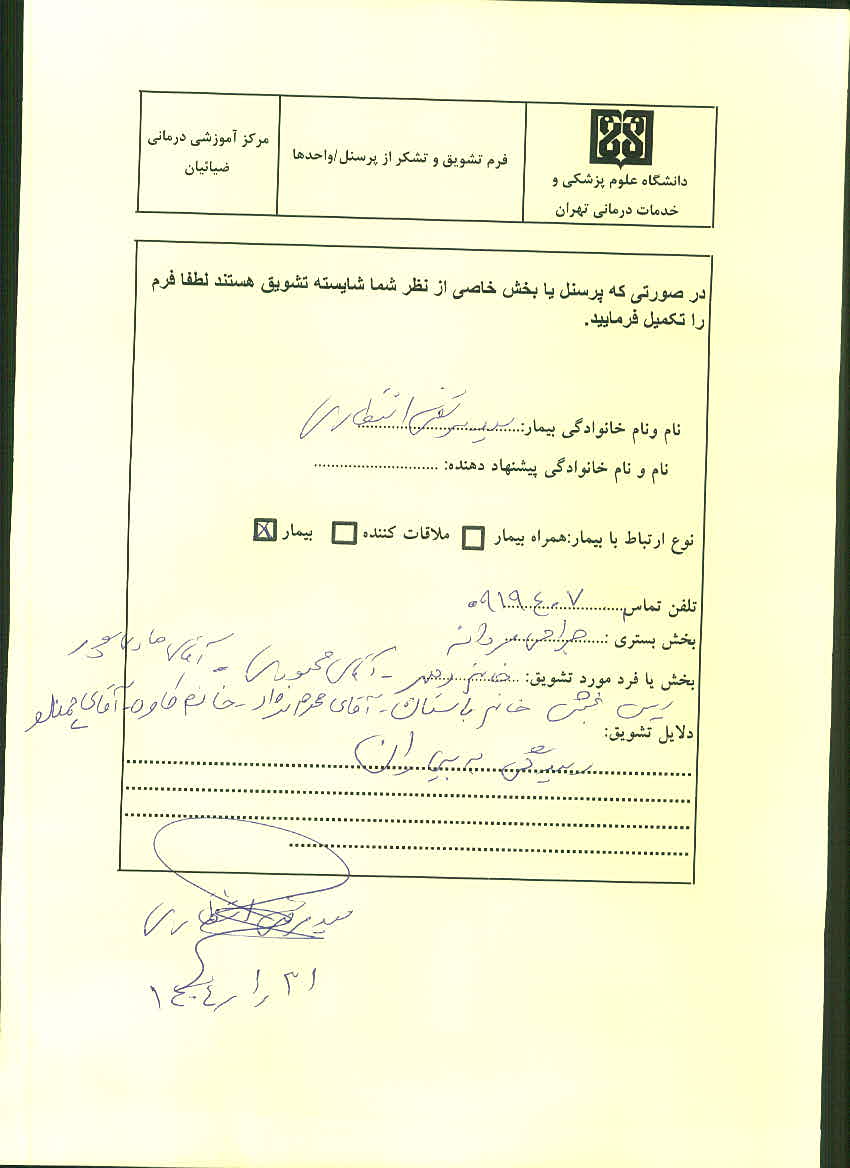 دانشگاه علوم پزشکی و
خدمات درمانی تهران
فرم تشویق و تشکر از پرسنل/واحدها
مرکز آموزشی درمانی
ضیائیان
در صورتی که پرسنل یا بخش خاصی از نظر شما شایسته تشویق هستند لطفا فرم
را تکمیل فرمایید.
نام ونام خانوادگی بیمار: سید مرتضی انتظاری
نام و نام خانوادگی پیشنهاد دهنده:
نوع ارتباط با بیمار:همراه بیمار ملاقات کننده بیمار X
تلفن تماس ۰۹۱۹٤۰۷
بخش بستری : جراحی مردانه
بخش یا فرد مورد تشویق: خانم - آقای محمودی - آقای
رییس بخش خانم باستان - آقای محرم نژاد - خانم کاوه - آقای
دلایل تشویق:
رسیدگی به بیماران
سید مرتضی انتظاری
۱٤۰٤/۱/۳۱